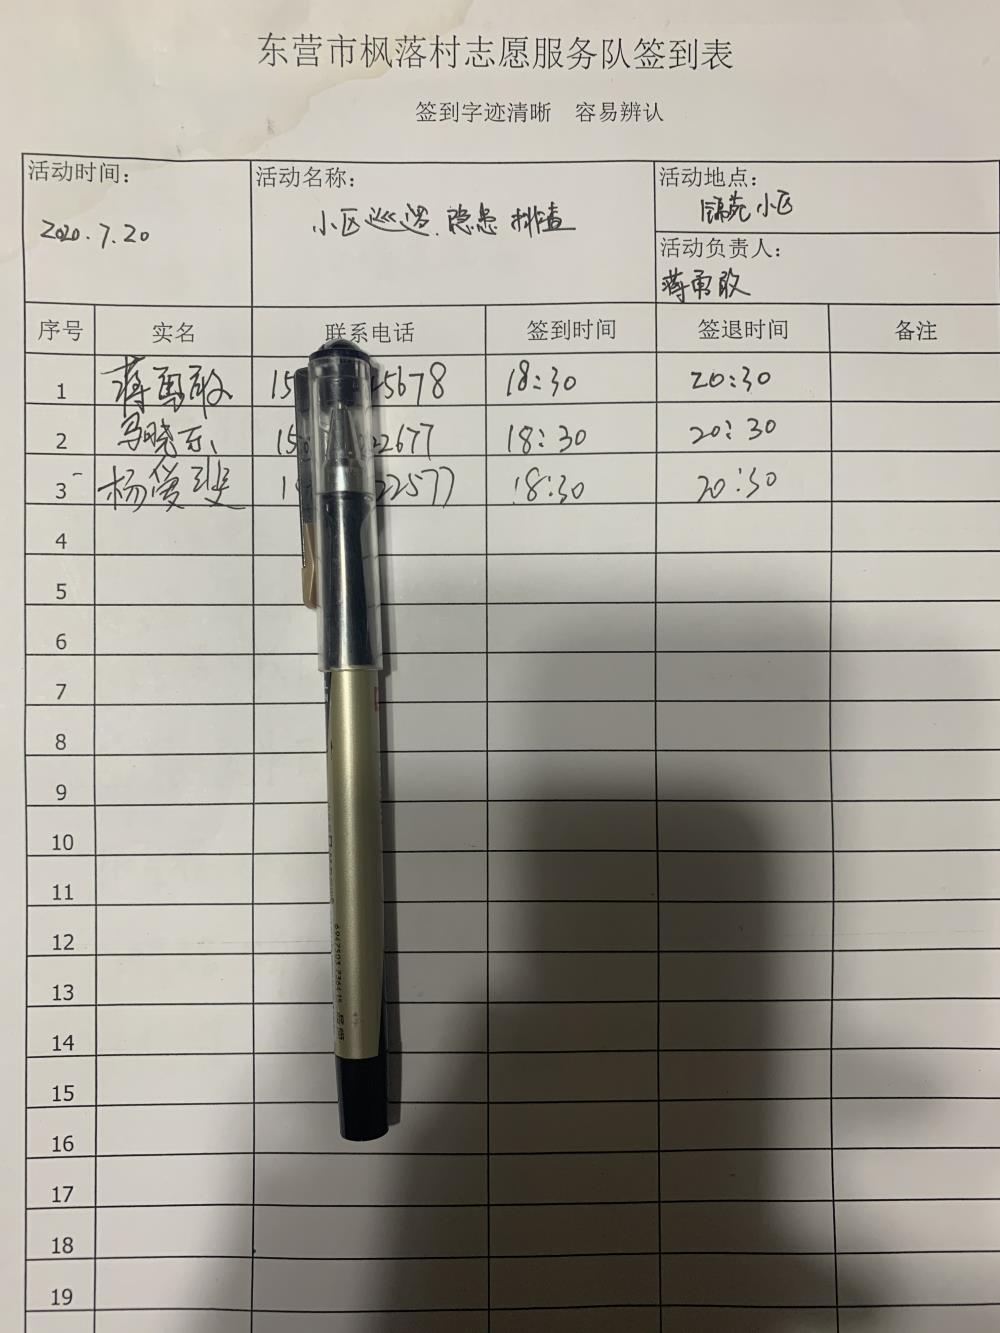 东营市枫落村志愿服务队签到表
签到字迹清晰 容易辨认
活动时间: 活动名称: 活动地点:
2020.7.20 小区巡逻.隐患排查 锦苑小区
活动负责人:
蒋勇敢
序号 实名 联系电话 签到时间 签退时间 备注
1 蒋勇敢 15 5678 18:30 20:30
2 马晓东 15 22677 18:30 20:30
3 杨俊斐 1 22577 18:30 20:30
4
5
6
7
8
9
10
11
12
13
14
15
16
17
18
19